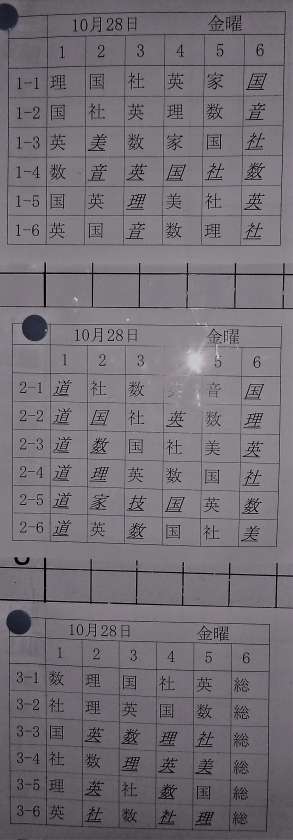 10月28日 金曜
1 2 3 4 5 6
1-1 理 国 社 英 家 国
1-2 国 社 英 理 数 音
1-3 英 美 数 家 国 社
1-4 数 音 英 国 社 数
1-5 国 英 理 美 社 英
1-6 英 国 音 数 理 社
10月28日 金曜
1 2 3 5 6
2-1 道 社 数 音 国
2-2 道 国 社 英 数 理
2-3 道 数 国 社 美 英
2-4 道 理 英 数 国 社
2-5 道 家 技 国 英 数
2-6 道 英 数 国 社 美
10月28日 金曜
1 2 3 4 5 6
3-1 数 理 国 社 英 総
3-2 社 理 英 国 数 総
3-3 国 英 数 理 社 総
3-4 社 数 理 英 美 総
3-5 理 英 社 数 国 総
3-6 英 社 数 社 理 総